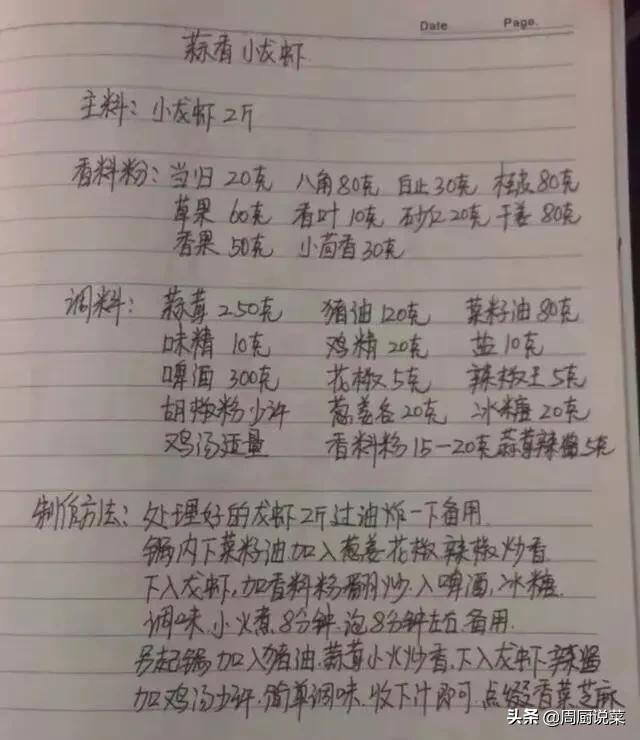 Date Page.
蒜香小龙虾
主料：小龙虾2斤
香料粉：当归20克 八角80克 白止30克 桂皮80克
草果60克 香叶10克 砂仁20克 干姜80克
香果50克 小茴香30克
调料：蒜茸250克 猪油120克 菜籽油80克
味精10克 鸡精20克 盐10克
啤酒300克 花椒5克 辣椒王5克
胡椒粉少许 葱姜各20克 冰糖20克
鸡汤适量 香料粉15—20克 蒜蓉辣酱5克
制作方法：处理好的龙虾2斤过油炸一下备用
锅内下菜籽油加入葱姜花椒辣椒炒香
下入龙虾，加香料粉翻炒.入啤酒，冰糖
调味.小火煮8分钟.泡8分钟左右.备用.
另起锅加入猪油.蒜茸小火炒香.下入龙虾.辣酱
加鸡汤少许.简单调味.收下汁即可.点缀香菜芝麻
头条@周厨说菜